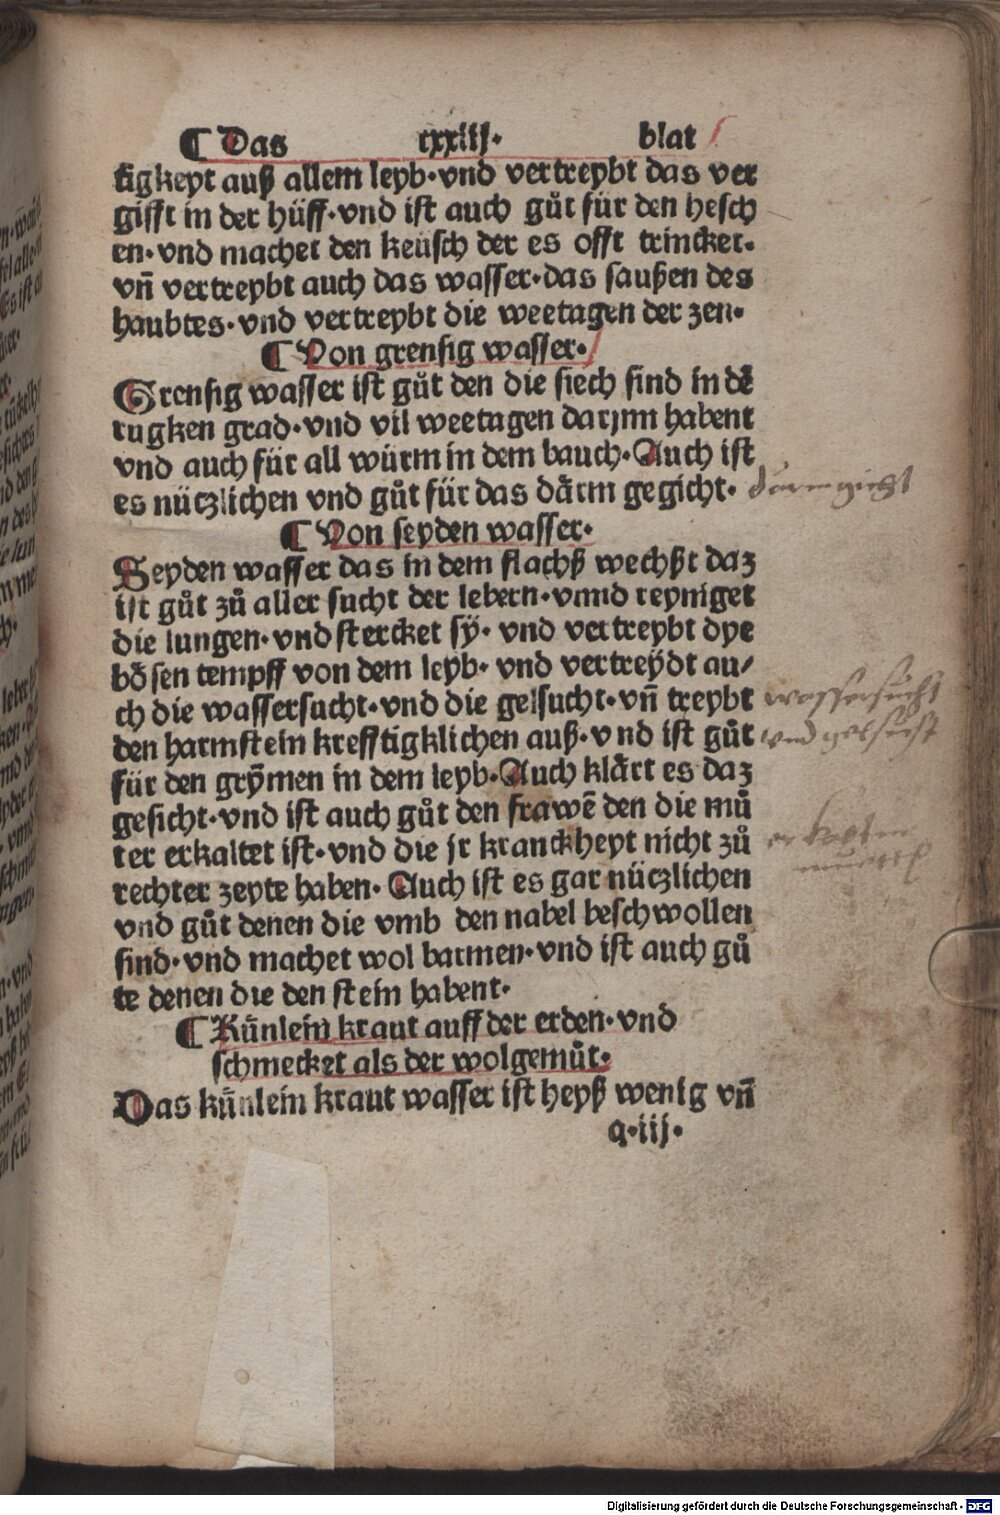 ¶ Das cxxiij. blat
tigkeyt auß allem leyb·vnd vertreybt das ver
gifft in der hüff·vnd ist auch gůt für den hesch
en·vnd machet den keüsch der es offt trincket.
vñ vertreybt auch das wasser·das saußen des
haubtes·vnd vertreybt die weetagen der zen·
¶ Von grensig wasser·
Grensig wasser ist gůt den die siech sind in dẽ
rugken grad·vnd vil weetagen darjnn habent
vnd auch für all würm in dem bauch·Auch ist
es nützlichen vnd gůt für das därm gegicht·
darmgicht
¶ Von seyden wasser·
Seyden wasser das in dem flachß wechßt daz
ist gůt zů aller sucht der lebern·vnnd reyniget
die lungen·vnd stercket sÿ· vnd vertreybt dye
bösen tempff von dem leyb· vnd vertreÿdt au/
ch die wassersucht·vnd die gelsucht·vñ treybt
wassersucht
den harmstein krefftigklichen auß·vnd ist gůt
vnd gelsucht
für den grÿmen in dem leyb·Auch klärt es daz
gesicht·vnd ist auch gůt den frawẽ den die mů
ter erkaltet ist·vnd die jr kranckheyt nicht zů
rechter zeyte haben· Auch ist es gar nützlichen
vnd gůt denen die vmb den nabel beschwollen
sind·vnd machet wol barmen·vnd ist auch gů
te denen die den stein habent·
¶ Künlein kraut auff der erden·vnd
schmecket als der wolgemůt·
Das künlein kraut wasser ist heyß wenig vñ
q·iij·
Digitalisierung gefördert durch die Deutsche Forschungsgemeinschaft - DFG